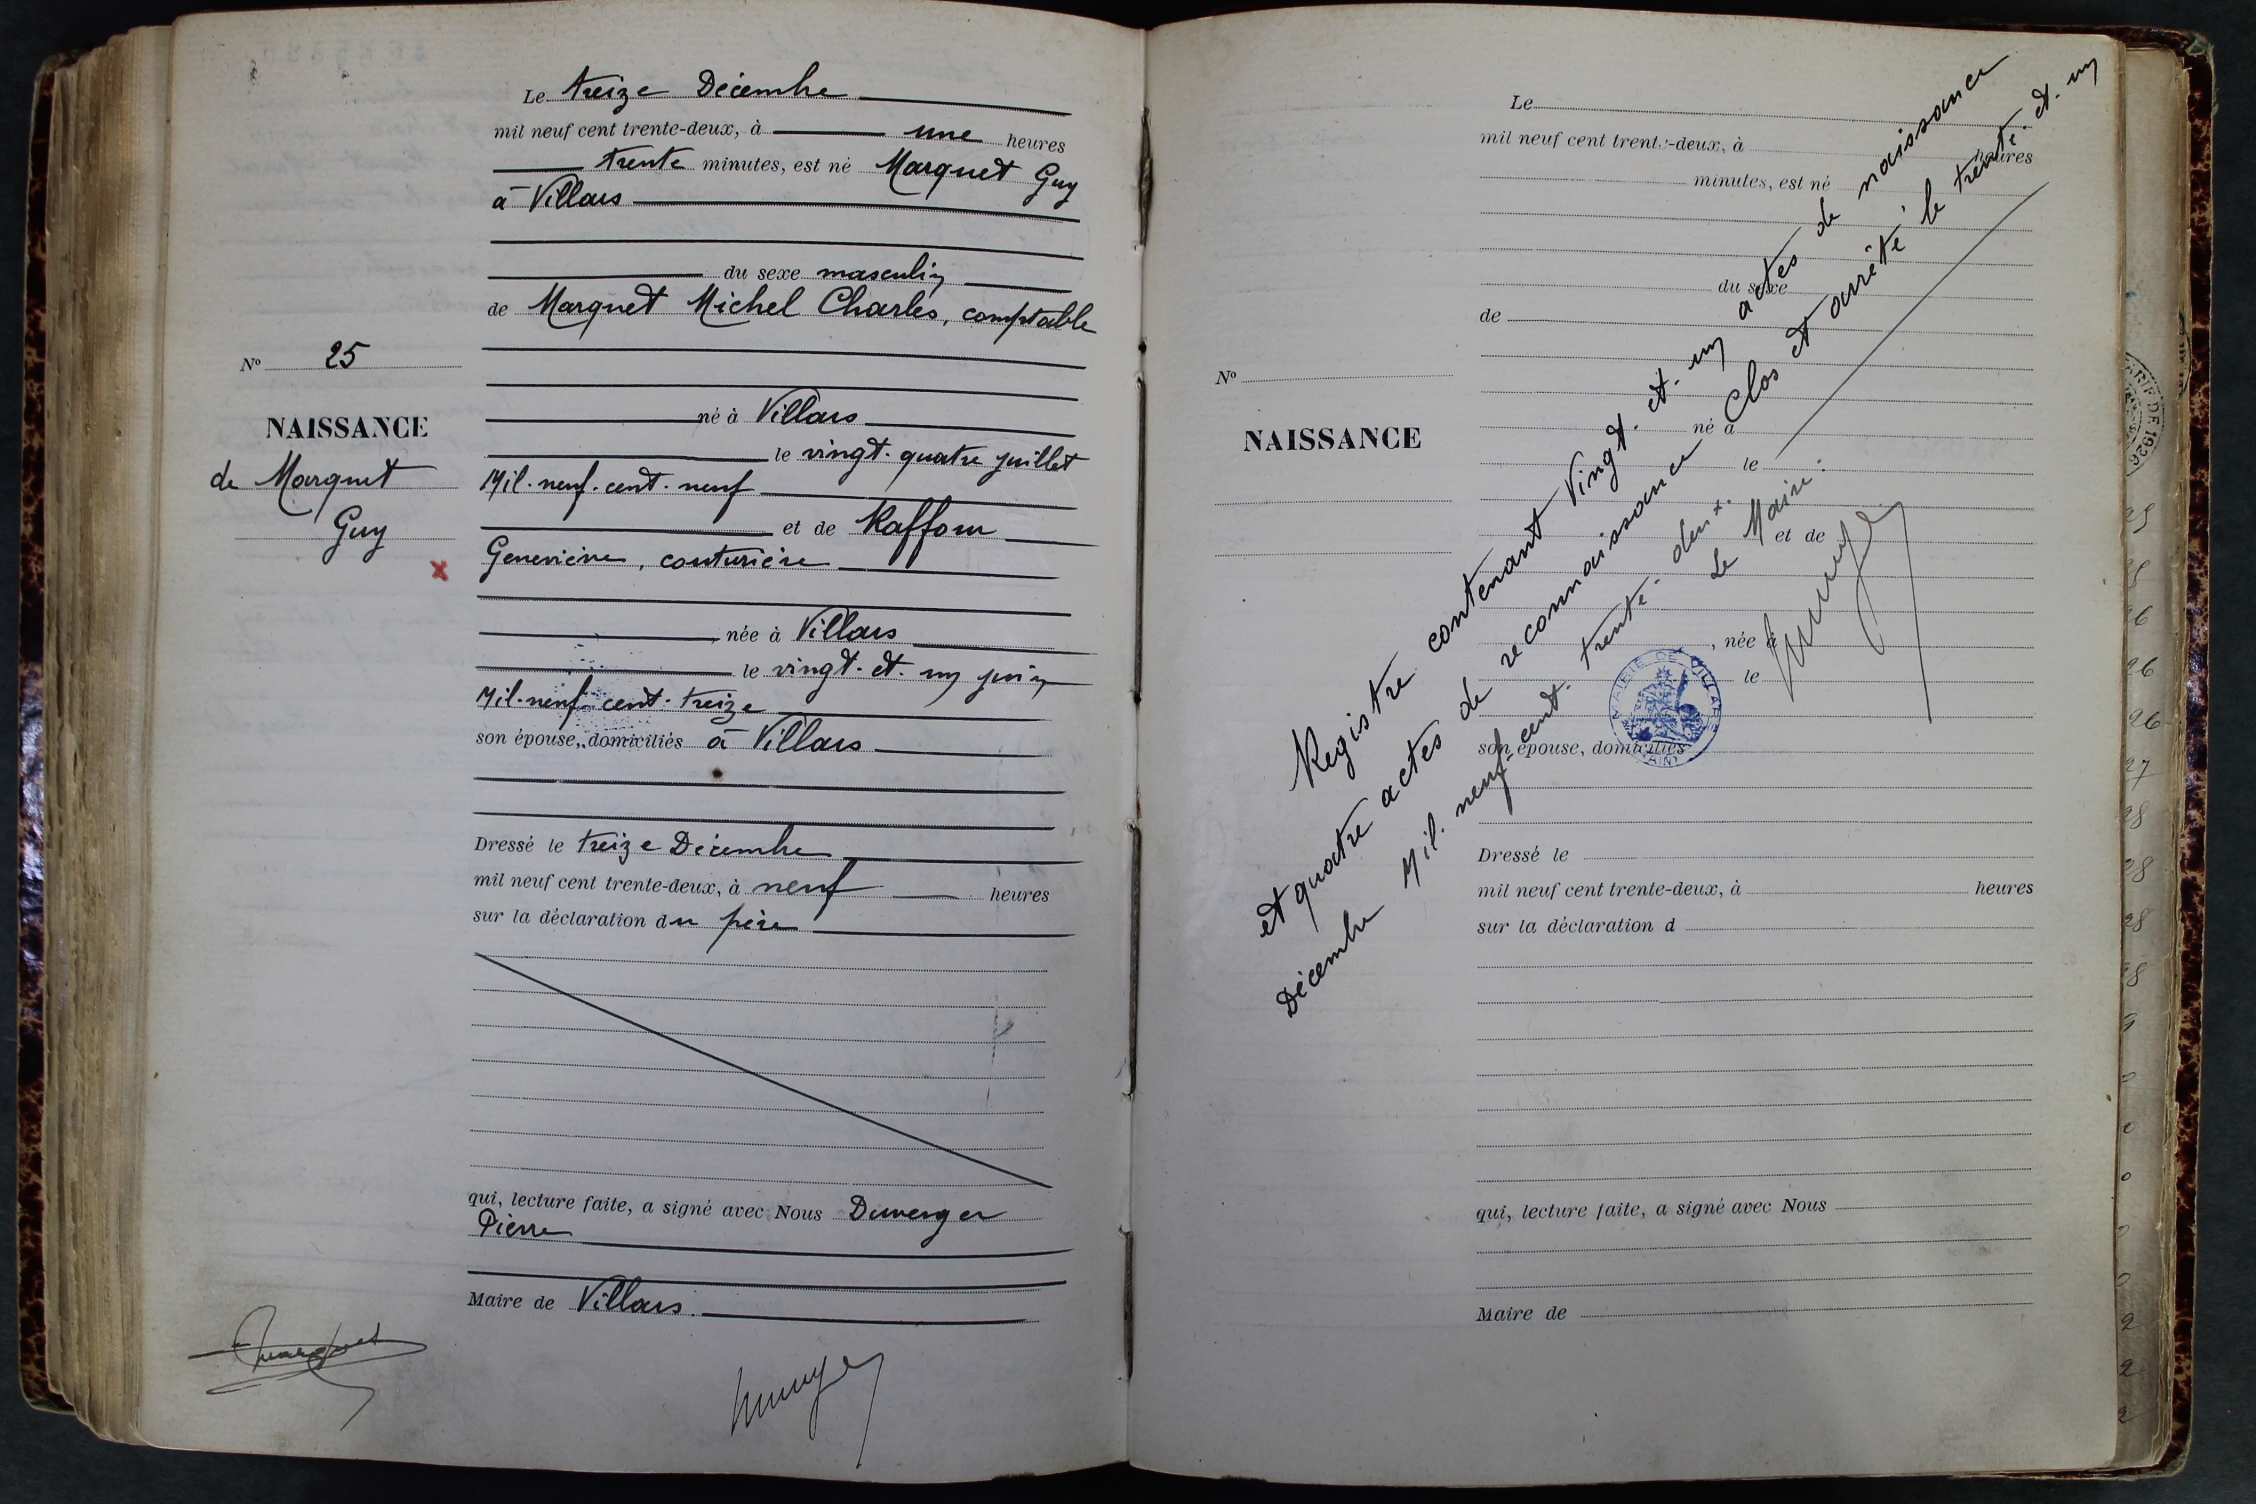 Le treize Décembre
mil neuf cent trente-deux, à une heures
trente minutes, est né Marquet Guy
à Villars
du sexe masculin
de Marquet Michel Charles, comptable
né à Villars
le vingt-quatre juillet
Mil-neuf-cent-neuf
et de Raffour
Geneviève, couturière
née à Villars
le vingt-et-un juin
Mil-neuf-cent-treize
son épouse, domiciliés à Villars
Dressé le treize Décembre
mil neuf cent trente-deux, à neuf heures
sur la déclaration du père
qui, lecture faite, a signé avec Nous Duverger
Pierre
Maire de Villars
Nº 25
NAISSANCE
de Marquet
Guy
Marquet
Le
mil neuf cent trente-deux, à heures
minutes, est né
du sexe
de
né à
le
et de
, née à
le
son épouse, domiciliés
Dressé le
mil neuf cent trente-deux, à heures
sur la déclaration d
qui, lecture faite, a signé avec Nous
Maire de
Nº
NAISSANCE
Registre contenant Vingt-et-un actes de naissance
et quatre actes de reconnaissance Clos et arrêté le trente-et-un
Décembre Mil-neuf-cent-trente-deux.
Le Maire:
MAIRIE DE VILLARS
(AIN)